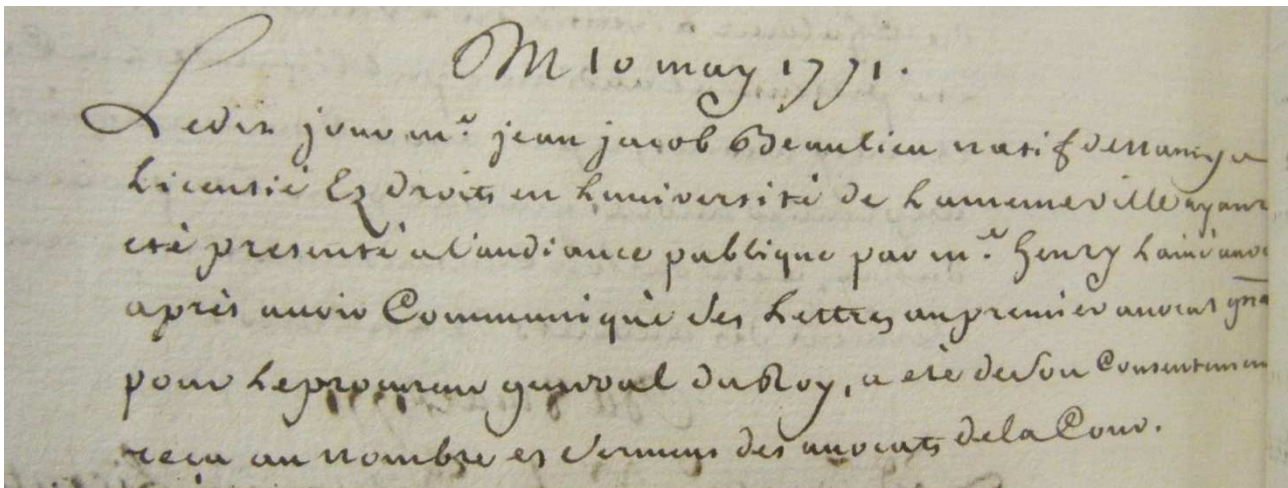 M 10 may 1771.
Ledit jour mᵉ. jean jacob Beaulieu natif de nancy
Licentié Ez droits en Luniversité de Lamemeville ayant
eté presenté a l'audiance publique par mᵉ. henry Lainé avoc
après avoir Communiqué des Lettres au premier avocat gña
pour Leprocureur general du Roy, a eté de son Consentemen
recu au nombre et serment des avocats de la Cour.